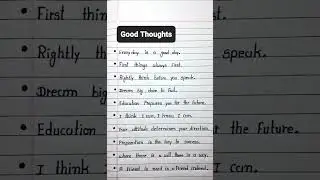 Good Thoughts
Everyday is a good day.
First things always first.
Rightly think before you speak.
Dream big, dare to fail.
Education Prepares you for the future.
I think I can, I know I can.
Your attitude determines your direction.
Preparation is the key to success.
where there is a will, there is a way.
A friend in need is a friend indeed.